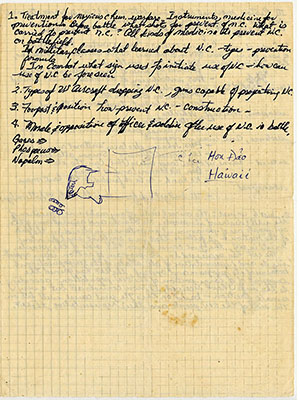 1. Treatment for nipro chem. weapons - Instruments, medicine for
prevention. Before battle what shots for prevent of N.C. What is
carried to prevent N.C.? All kinds of medicine to prevent N.C.
on battlefield.
In military classes - what learned about N.C. - types - prevention
formula
In combat what sign used to initiate use of N.C. - how can
use of N.C. be foreseen
2. Types of US aircraft dropping N.C. guns capable of projecting N.C.
3. position how prevent N.C. - construction -
4. Morale & opinions of officers & soldiers of the use of N.C. in battle
Gases
Phosphorus
Napalm
Hoa Đảo
Hawaii